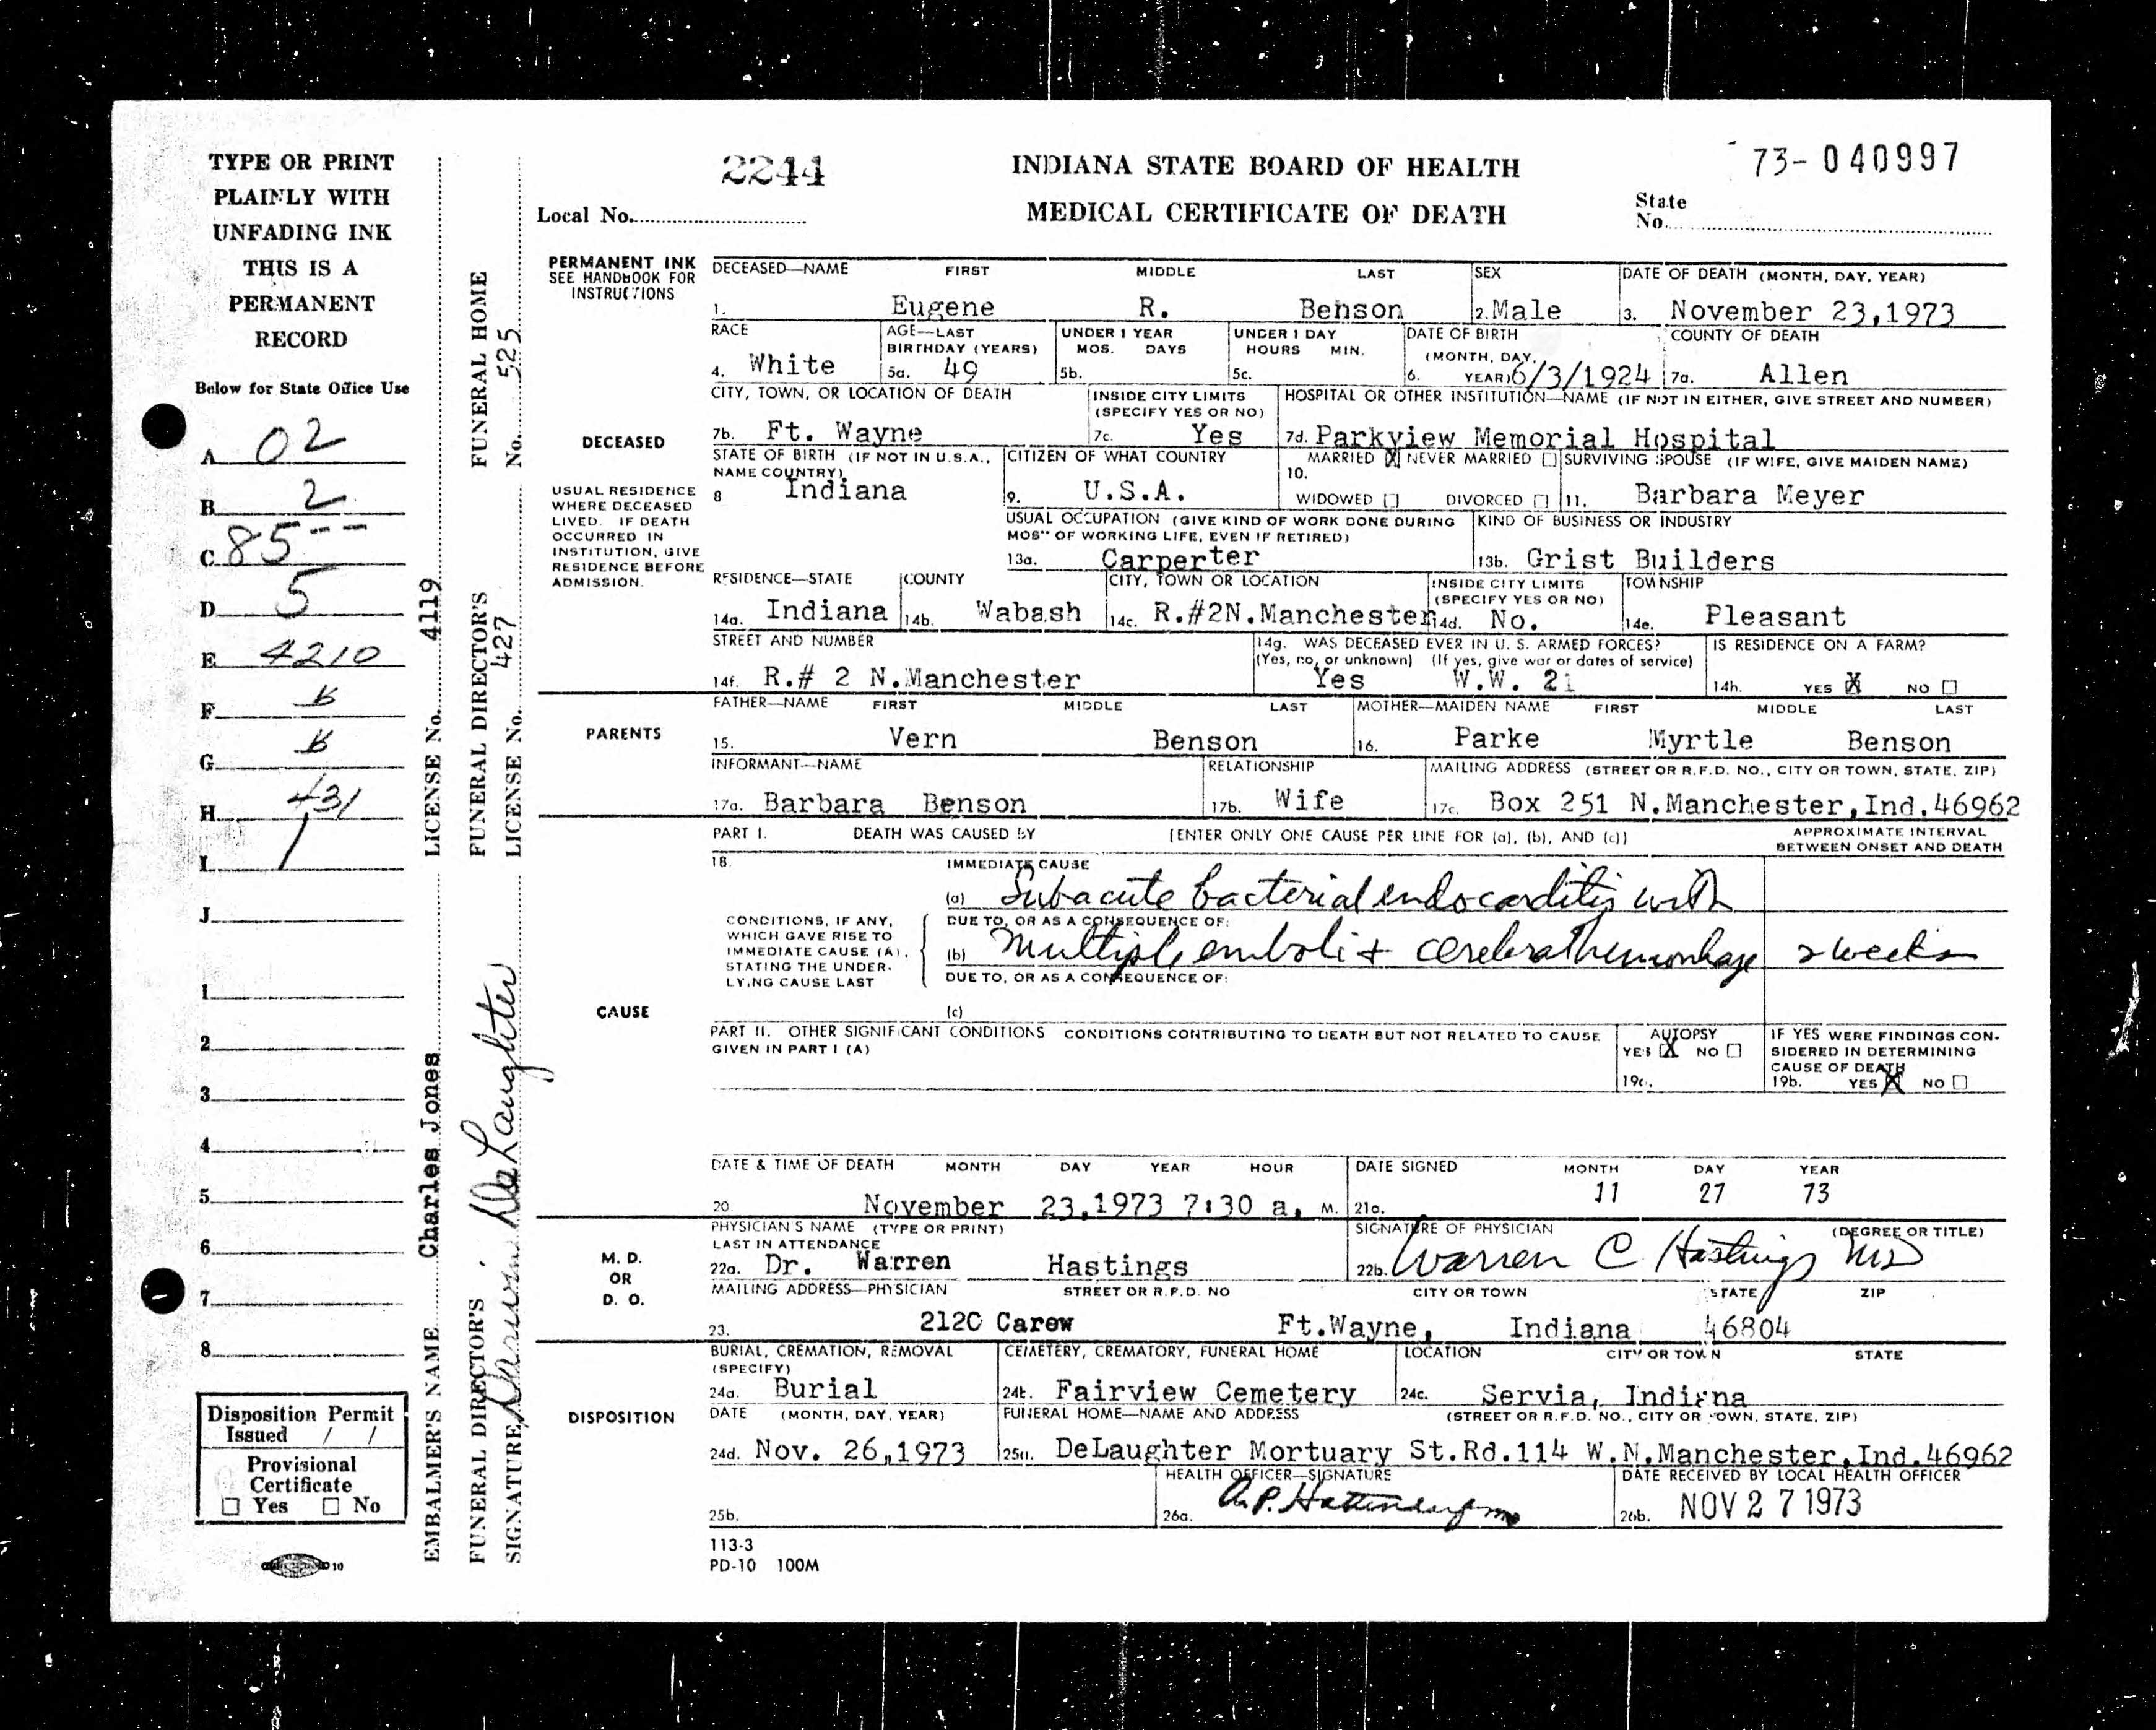 TYPE OR PRINT
PLAINLY WITH
UNFADING INK
THIS IS A
PERMANENT
RECORD
Below for State Office Use
A 02
B 2
C 85--
D 5
E 4210
F
G
H 431
I 1
J
1
2
3
4
5
6
7
8
Disposition Permit
Issued / /
Provisional
Certificate
☐ Yes ☐ No
10
EMBALMER'S NAME Charles Jones LICENSE No. 4119
FUNERAL DIRECTOR'S FUNERAL DIRECTOR'S FUNERAL HOME
SIGNATURE DeLaughter LICENSE No. 427 No. 525
2244 INDIANA STATE BOARD OF HEALTH 73-040997
Local No. MEDICAL CERTIFICATE OF DEATH State
No.
PERMANENT INK
SEE HANDBOOK FOR
INSTRUCTIONS
DECEASED—NAME FIRST MIDDLE LAST SEX DATE OF DEATH (MONTH, DAY, YEAR)
1. Eugene R. Benson 2. Male 3. November 23,1973
RACE AGE—LAST UNDER 1 YEAR UNDER 1 DAY DATE OF BIRTH COUNTY OF DEATH
BIRTHDAY (YEARS) MOS. DAYS HOURS MIN. (MONTH, DAY,
4. White 5a. 49 5b. 5c. 6. YEAR) 6/3/1924 7a. Allen
CITY, TOWN, OR LOCATION OF DEATH INSIDE CITY LIMITS HOSPITAL OR OTHER INSTITUTION—NAME (IF NOT IN EITHER, GIVE STREET AND NUMBER)
(SPECIFY YES OR NO)
DECEASED
7b. Ft. Wayne 7c. Yes 7d. Parkview Memorial Hospital
STATE OF BIRTH (IF NOT IN U.S.A., CITIZEN OF WHAT COUNTRY MARRIED ☒ NEVER MARRIED ☐ SURVIVING SPOUSE (IF WIFE, GIVE MAIDEN NAME)
NAME COUNTRY) 10.
8 Indiana 9. U.S.A. WIDOWED ☐ DIVORCED ☐ 11. Barbara Meyer
USUAL RESIDENCE
WHERE DECEASED
LIVED. IF DEATH
OCCURRED IN
INSTITUTION, GIVE
RESIDENCE BEFORE
ADMISSION.
USUAL OCCUPATION (GIVE KIND OF WORK DONE DURING KIND OF BUSINESS OR INDUSTRY
MOST OF WORKING LIFE, EVEN IF RETIRED)
13a. Carperter 13b. Grist Builders
RESIDENCE—STATE COUNTY CITY, TOWN OR LOCATION INSIDE CITY LIMITS TOWNSHIP
(SPECIFY YES OR NO)
14a. Indiana 14b. Wabash 14c. R.#2N.Manchester 14d. No. 14e. Pleasant
STREET AND NUMBER 14g. WAS DECEASED EVER IN U. S. ARMED FORCES? IS RESIDENCE ON A FARM?
(Yes, no, or unknown) (If yes, give war or dates of service)
14f. R.# 2 N.Manchester Yes W.W. 21 14h. YES ☒ NO ☐
FATHER—NAME FIRST MIDDLE LAST MOTHER—MAIDEN NAME FIRST MIDDLE LAST
PARENTS
15. Vern Benson 16. Parke Myrtle Benson
INFORMANT—NAME RELATIONSHIP MAILING ADDRESS (STREET OR R.F.D. NO., CITY OR TOWN, STATE, ZIP)
17a. Barbara Benson 17b. Wife 17c. Box 251 N.Manchester,Ind.46962
PART I. DEATH WAS CAUSED BY [ENTER ONLY ONE CAUSE PER LINE FOR (a), (b), AND (c)] APPROXIMATE INTERVAL
BETWEEN ONSET AND DEATH
18. IMMEDIATE CAUSE
(a) Subacute bacterial endocarditis with
CONDITIONS, IF ANY,
WHICH GAVE RISE TO
IMMEDIATE CAUSE (A),
STATING THE UNDER-
LYING CAUSE LAST
DUE TO, OR AS A CONSEQUENCE OF:
(b) Multiple emboli + cerebral hemorrhage 2 weeks
DUE TO, OR AS A CONSEQUENCE OF:
CAUSE
(c)
PART II. OTHER SIGNIFICANT CONDITIONS CONDITIONS CONTRIBUTING TO DEATH BUT NOT RELATED TO CAUSE AUTOPSY IF YES WERE FINDINGS CON-
GIVEN IN PART I (A) YES ☒ NO ☐ SIDERED IN DETERMINING
CAUSE OF DEATH
19a. 19b. YES ☒ NO ☐
DATE & TIME OF DEATH MONTH DAY YEAR HOUR DATE SIGNED MONTH DAY YEAR
20. November 23,1973 7:30 a. M. 21a. 11 27 73
PHYSICIAN'S NAME (TYPE OR PRINT) SIGNATURE OF PHYSICIAN (DEGREE OR TITLE)
LAST IN ATTENDANCE
M. D.
OR
D. O.
22a. Dr. Warren Hastings 22b. Warren C Hastings MD
MAILING ADDRESS—PHYSICIAN STREET OR R.F.D. NO CITY OR TOWN STATE ZIP
23. 2120 Carew Ft.Wayne, Indiana 46804
BURIAL, CREMATION, REMOVAL CEMETERY, CREMATORY, FUNERAL HOME LOCATION CITY OR TOWN STATE
(SPECIFY)
24a. Burial 24b. Fairview Cemetery 24c. Servia, Indiana
DISPOSITION
DATE (MONTH, DAY, YEAR) FUNERAL HOME—NAME AND ADDRESS (STREET OR R.F.D. NO., CITY OR TOWN, STATE, ZIP)
24d. Nov. 26,1973 25a. DeLaughter Mortuary St.Rd.114 W.N.Manchester,Ind.46962
HEALTH OFFICER—SIGNATURE DATE RECEIVED BY LOCAL HEALTH OFFICER
25b. 26a. 26b. NOV 27 1973
113-3
PD-10 100M